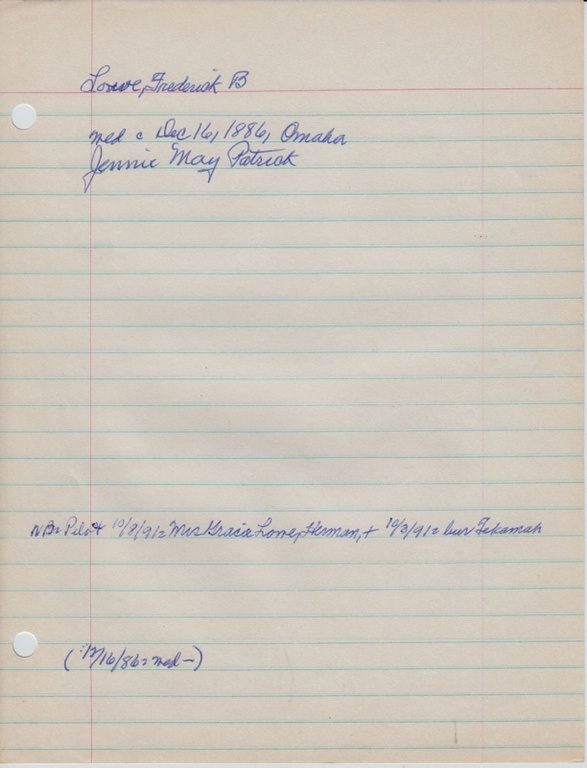 Lowe, Frederick B
med c Dec 16, 1886, Omaha
Jennie May Patrick
Pilot 10/8/912 Mrs Gracie Lowe, Herman, + 10/3/912 bur Tekamah
(12/16/86 = med -)